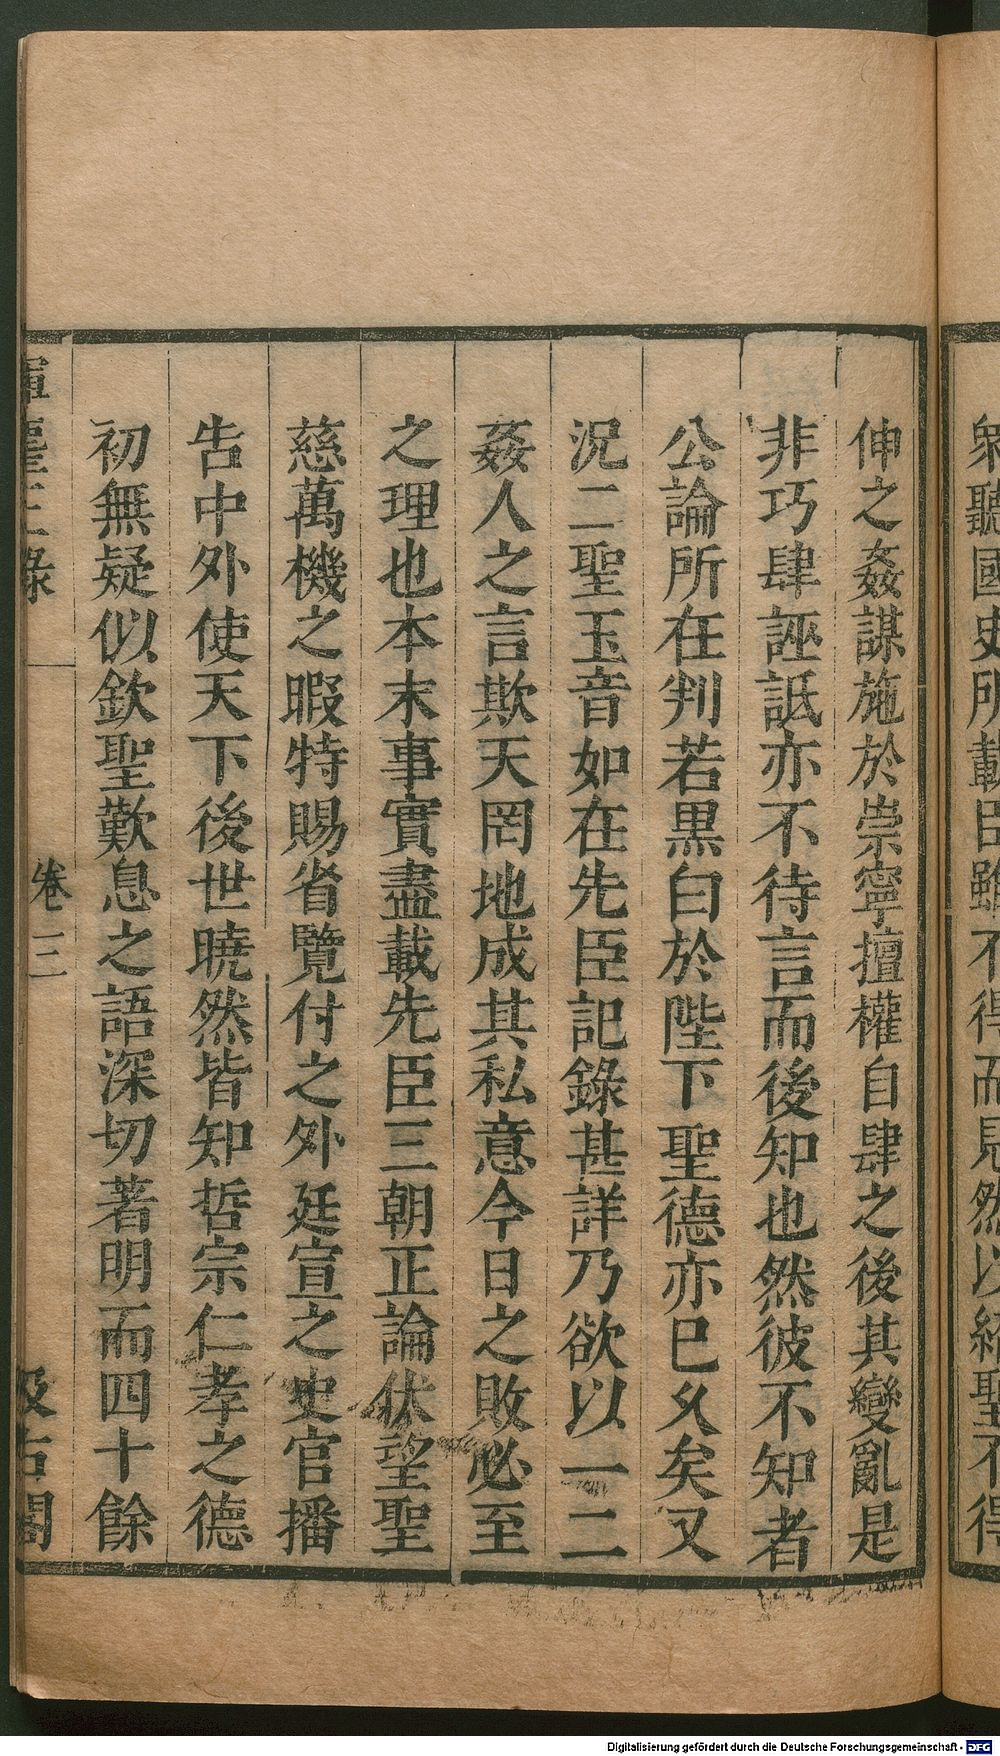 衆聽國史所載臣雖不得而見然以紹聖不得
伸之姦謀施於崇寧擅權自肆之後其變亂是
非巧肆誣詆亦不待言而後知也然彼不知者
公論所在判若黒白於陛下聖德亦巳久矣又
況二聖玉音如在先臣記錄甚詳乃欲以一二
姦人之言欺天罔地成其私意今日之敗必至
之理也本末事實盡載先臣三朝正論伏望聖
慈萬機之暇特賜省覽付之外廷宣之史官播
告中外使天下後世曉然皆知哲宗仁孝之德
初無疑似欽聖歎息之語深切著明而四十餘
揮麈三錄 卷三 汲古閣
Digitalisierung gefördert durch die Deutsche Forschungsgemeinschaft - DFG